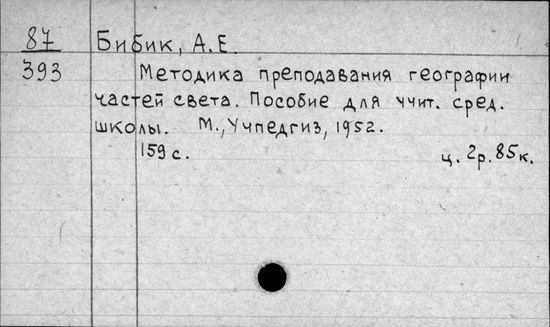 87 Бибик, А.Е.
393 Методика преподавания географии
частей света. Пособие для учит. сред.
школы. М., Учпедгиз, 1952.
159 с. ц. 2р. 85к.